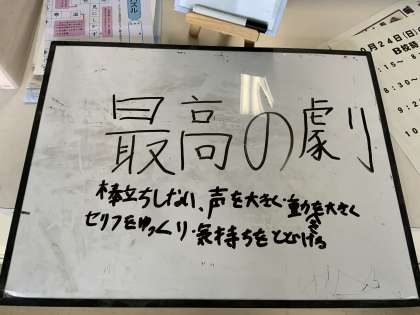 最高の劇
棒立ちしない、声を大きく・動きを大きく
セリフをゆっくり・気持ちをとどける
0月24日(日)